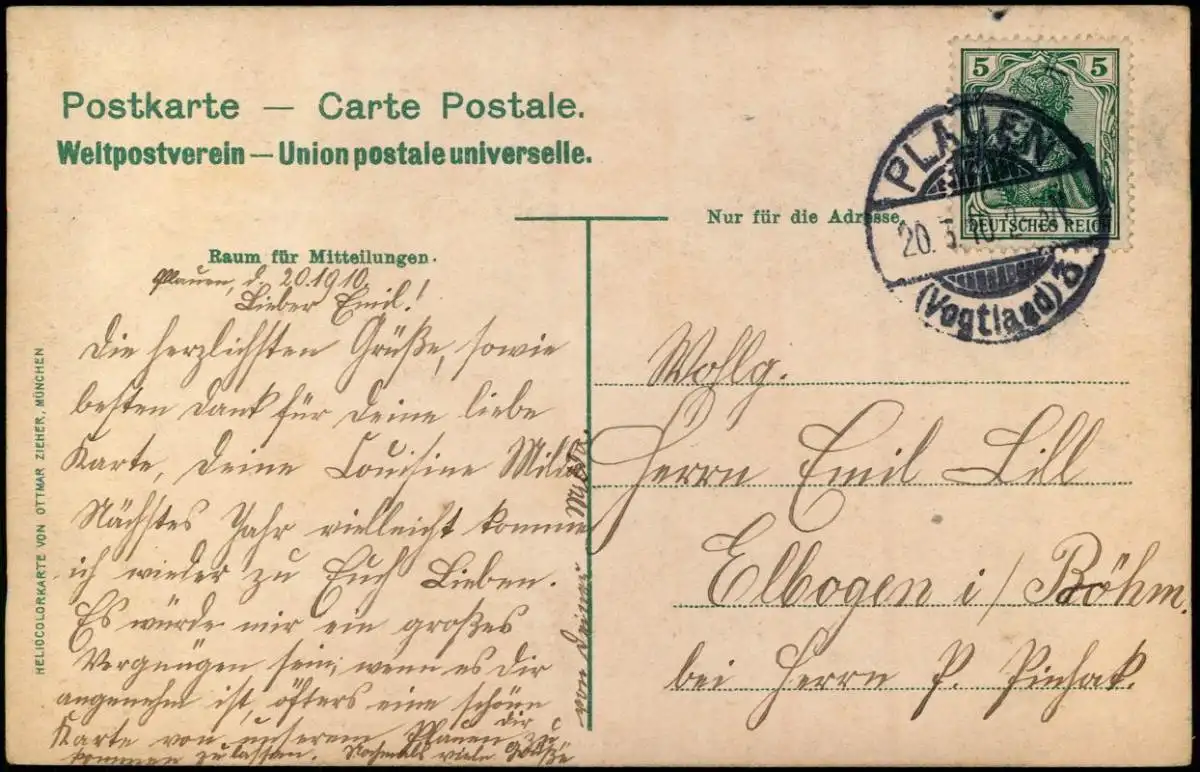 Postkarte — Carte Postale.
Weltpostverein — Union postale universelle.
5 5
DEUTSCHES REICH
PLAUEN
20. 3. 10. 2-3N
(Vogtland) 3
Nur für die Adresse.
Raum für Mitteilungen.
Plauen, d. 20.1910.
Lieber Emil!
Die herzlichsten Grüße, sowie
besten Dank für Deine liebe
Karte, Deine Cousine Milda
Nächstes Jahr vielleicht komme
ich wieder zu Euch Lieben.
Es würde mir ein großes
Vergnügen sein, wenn es Dir
angenehm ist, öfters eine schöne
Karte von unserem Plauen dir zu
kommen zu lassen. Nochmals viele Grüße
von Deiner Milda.
Wohlg.
Herrn Emil Lill
Elbogen i/Böhm.
bei Herrn P. Pinhak.
HELIOCOLORKARTE VON OTTMAR ZIEHER, MÜNCHEN